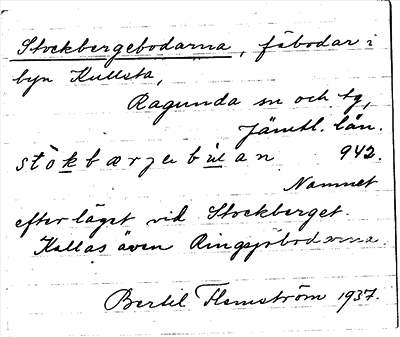 Stockbergebodarna, fäbodar i
byn Kullsta,
Ragunda sn och tg,
Jämtl. län.
942.
Namnet
efter läget vid Stockberget.
Kallas även Ringsjöbodarna.
Bertil Flemström 1937.